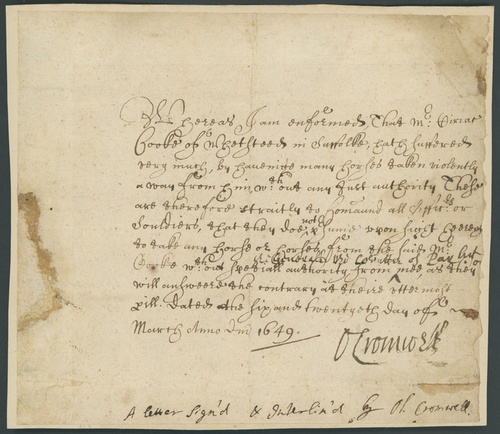 Whereas I am enformed That Mr. Ciriac
Cooke of Whetsteed in Suffolke, hath suffered
very much, by haueinge many horses taken violently
away from him wth.out any Just authority These
are therefore straitly to Comaund all Officrs. or
Souldiers, that they doe not p sume upon sight hereof
to take any Horse or horses from the said Mr.
Cooke wthout speciall authority from mee as they
will answeere the contrary at theire uttermost
pill. Dated the six and twentyeth day of
March Anno Dni 1649.
O Cromwell
A letter sign'd & interlin'd by Ol. Cromwell.